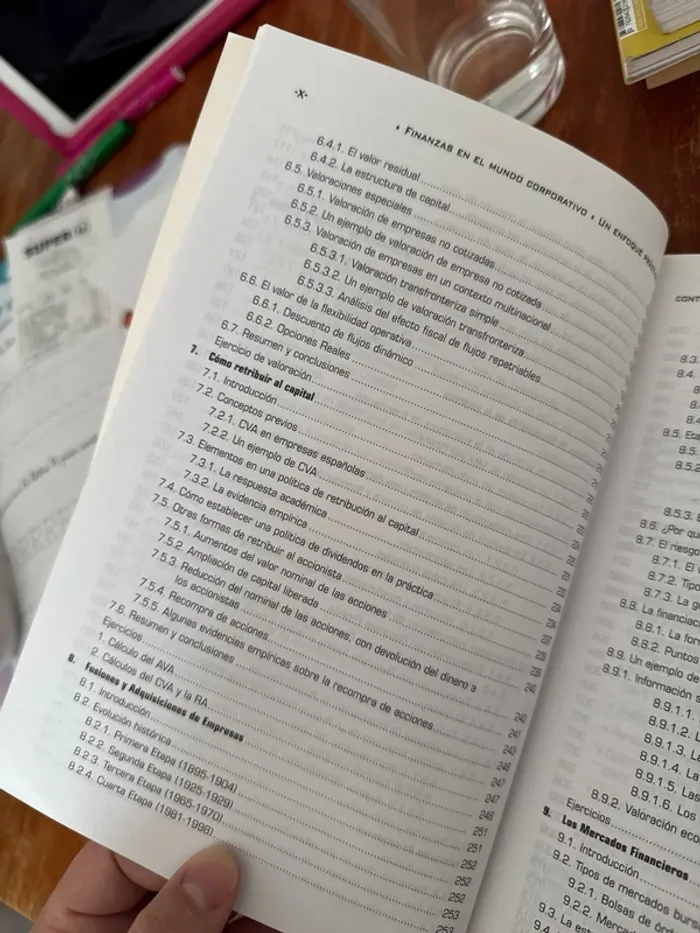 -X-
FINANZAS EN EL MUNDO CORPORATIVO • UN ENFOQUE
6.4.1. El valor residual
6.4.2. La estructura de capital
6.5. Valoraciones especiales
6.5.1. Valoración de empresas no cotizadas
6.5.2. Un ejemplo de valoración de empresa no cotizada
6.5.3. Valoración de empresas en un contexto multinacional
6.5.3.1. Valoración transfronteriza simple
6.5.3.2. Un ejemplo de valoración transfronteriza
6.5.3.3. Análisis del efecto fiscal de flujos repatriables
6.6. El valor de la flexibilidad operativa
6.6.1. Descuento de flujos dinámico
6.6.2. Opciones Reales
6.7. Resumen y conclusiones
Ejercicio de valoración
7. Cómo retribuir al capital
7.1. Introducción
7.2. Conceptos previos
7.2.1. CVA en empresas españolas
7.2.2. Un ejemplo de CVA
7.3. Elementos en una política de retribución al capital
7.3.1. La respuesta académica
7.3.2. La evidencia empírica
7.4. Cómo establecer una política de dividendos en la práctica
7.5. Otras formas de retribuir al accionista
7.5.1. Aumentos del valor nominal de las acciones
7.5.2. Ampliación de capital liberada
7.5.3. Reducción del nominal de las acciones, con devolución del dinero a
los accionistas
7.5.4. Recompra de acciones
7.5.5. Algunas evidencias empíricas sobre la recompra de acciones
7.6. Resumen y conclusiones
Ejercicios
1. Cálculo del AVA
2. Cálculos del CVA y la RA
8. Fusiones y Adquisiciones de Empresas
8.1. Introducción
8.2. Evolución histórica
8.2.1. Primera Etapa (1895-1904)
8.2.2. Segunda Etapa (1925-1929)
8.2.3. Tercera Etapa (1965-1970)
8.2.4. Cuarta Etapa (1981-1998)
240
240
241
243
246
247
247
248
251
251
252
252
252
253
253
CONT
8.3.
8.4.
8.5. Eta
8.5.
8.5.2
8.5.3.
8.6. ¿Por qu
8.7. El riesgo
8.7.1. El
8.7.2. Tipo
8.7.3. La g
8.8. La financiac
8.8.1. La for
8.8.2. Puntos
8.9. Un ejemplo de
8.9.1. Información s
8.9.1.1.
8.9.1.2. L
8.9.1.3. La
8.9.1.4. La
8.9.1.5. Las
8.9.1.6. Los
8.9.2. Valoración eco
Ejercicios
9. Los Mercados Financieros
9.1. Introducción
9.2. Tipos de mercados burs
9.2.1. Bolsas de órd
9.2.2. Merca
9.3. La est
9.4.
SUPER